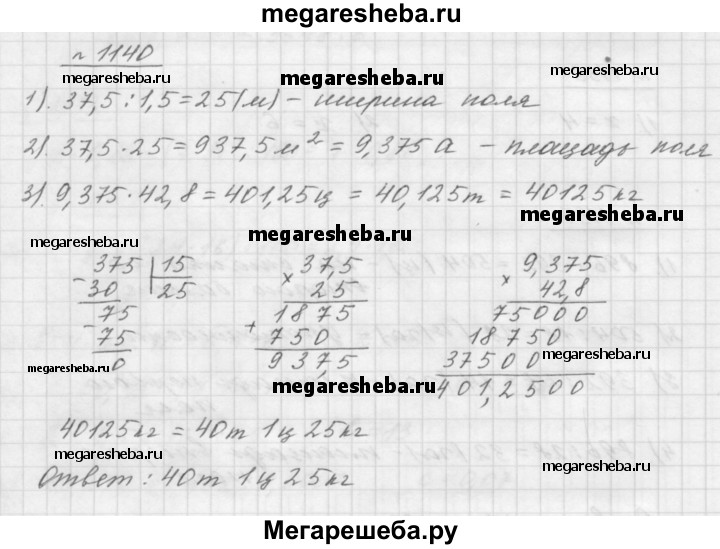 megaresheba.ru
№ 1140
megaresheba.ru
megaresheba.ru
megaresheba.ru
1). 37,5 : 1,5 = 25 (м) – ширина поля
megaresheba.ru
2). 37,5 · 25 = 937,5 м² = 9,375 а – площадь поля
3). 9,375 · 42,8 = 401,25 ц = 40,125 т = 40125 кг
megaresheba.ru
megaresheba.ru
megaresheba.ru
375 | 15
- 30 | 25
75
- 75
0
× 37,5
25
1875
+ 750
937,5
× 9,375
42,8
75000
18750
37500
401,2500
megaresheba.ru
megaresheba.ru
megaresheba.ru
megaresheba.ru
40125 кг = 40 т 1 ц 25 кг
megaresheba.ru
Ответ: 40 т 1 ц 25 кг
megaresheba.ru
Мегарешеба.ру